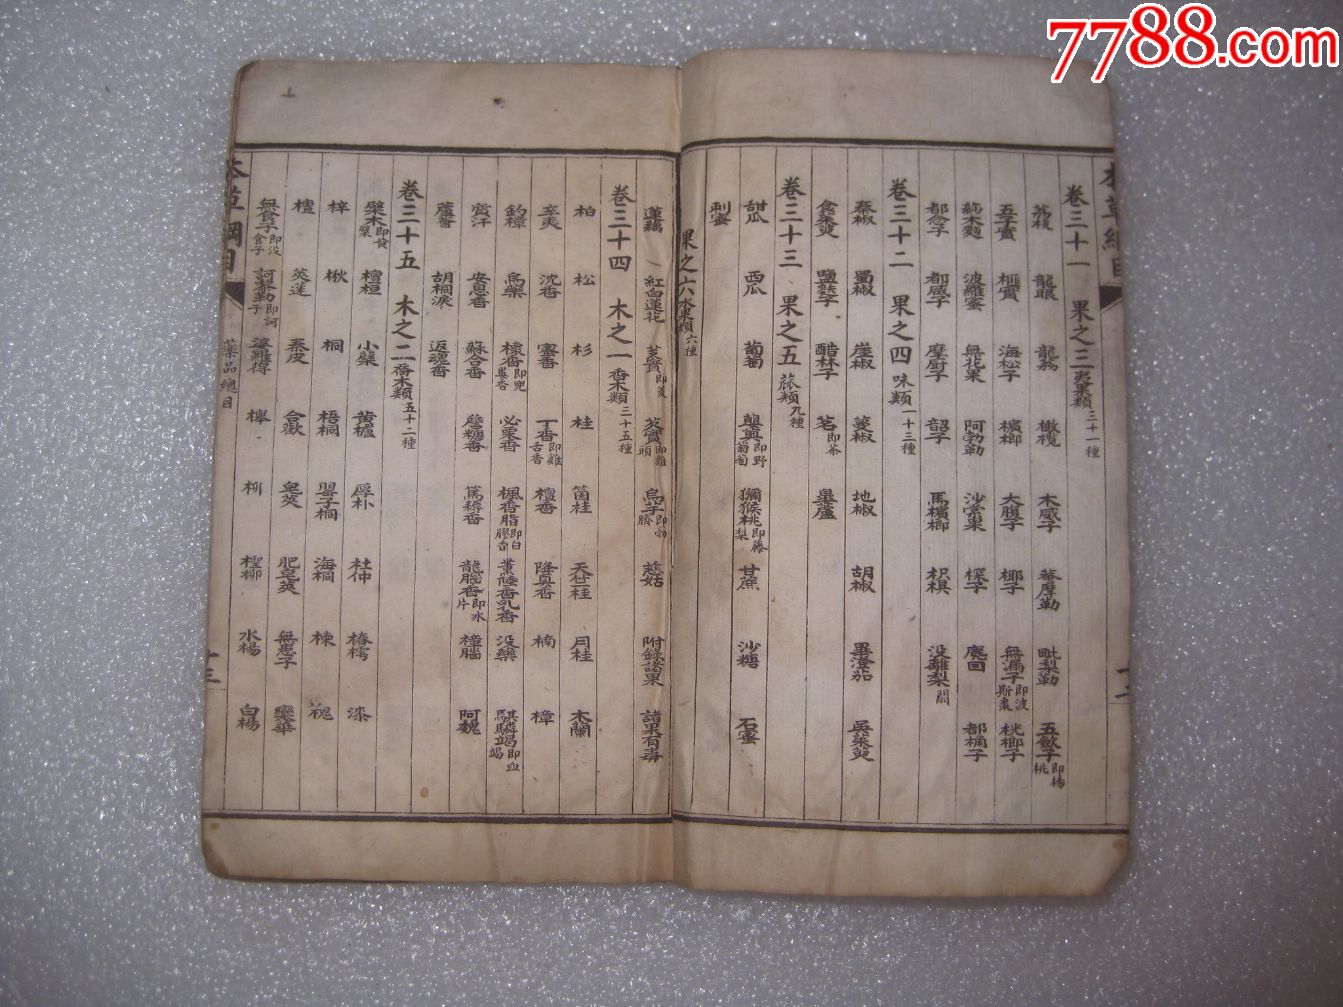 7788.com
卷三十一 果之三 夷果類三十一種
荔枝 龍眼 龍荔 橄欖 木威子 菴摩勒 毗梨勒 五斂子即楊桃
五子實 榧實 海松子 檳榔 大腹子 椰子 無漏子即波斯棗 桄榔子
莎木麵 波羅蜜 無花果 阿勃勒 沙棠果 探子 麂目 都桷子
都念子 都咸子 摩廚子 韶子 馬檳榔 枳椇
卷三十二 果之四 味類一十三種
秦椒 蜀椒 崖椒 蔓椒 地椒 胡椒 畢澄茄 吳茱萸
食茱萸 鹽麩子 醋林子 茗即茶 臯蘆
卷三十三 果之五 蓏類九種
甜瓜 西瓜 葡萄 蘡薁即野葡萄 獼猴桃即藤梨 甘蔗 沙糖 石蜜
刺蜜
果之六 水果類六種
蓮藕 紅白蓮花 芰實即菱 芡實即雞頭 烏芋 慈姑 附錄諸果 諸果有毒
卷三十四 木之一 香木類三十五種
柏 松 杉 桂 箘桂 天竺桂 月桂 木蘭
辛夷 沈香 蜜香 丁香即雞舌香 檀香 降真香 楠 樟
釣樟 烏藥 櫰香即兜婁香 必栗香 楓香脂即白膠香 薰陸香乳香 沒藥 騏驎竭即血竭
質汗 安息香 蘇合香 詹糖香 篤耨香 龍腦香即冰片 樟腦 阿魏
蘆薈 胡桐淚 返魂香
卷三十五 木之二 喬木類五十二種
檗木即黄檗 檀桓 小檗 黄櫨 厚朴 杜仲 椿樗 漆
梓 楸 桐 梧桐 罌子桐 海桐 楝 槐
檀 莢蒾 秦皮 合歡 皂莢 肥皂莢 無患子 欒華
無食子即沒食子 訶黎勒即訶子 婆羅得 櫸 柳 檉柳 水楊 白楊
本草綱目
藥品總目
十三